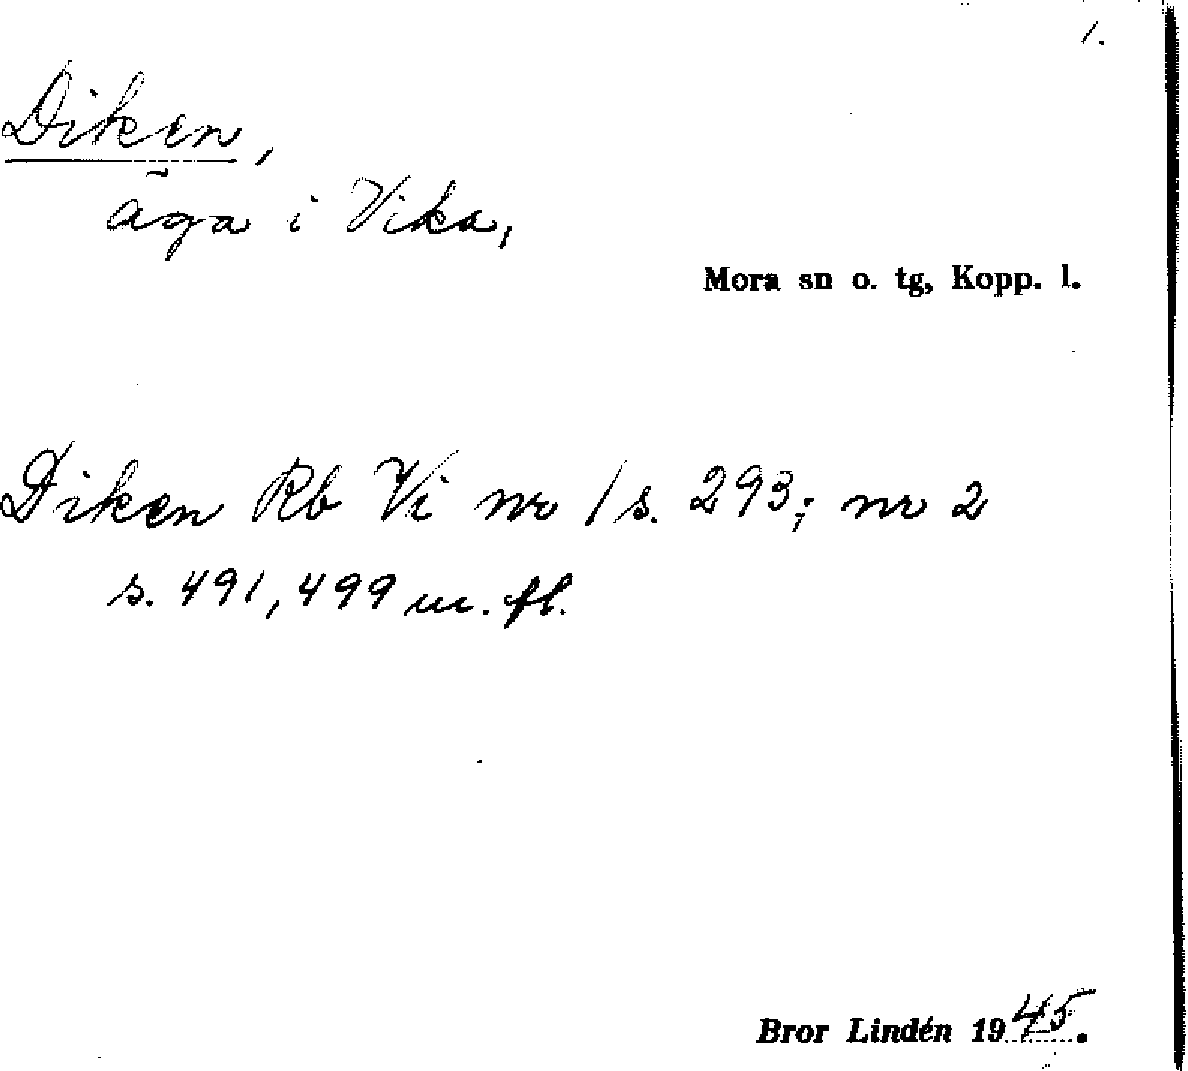 1.
Diken,
äga i Vika,
Mora sn o. tg, Kopp. l.
Diken Rb Vi nr 1 s. 293; nr 2
s. 491, 499 m. fl.
Bror Lindén 1945.